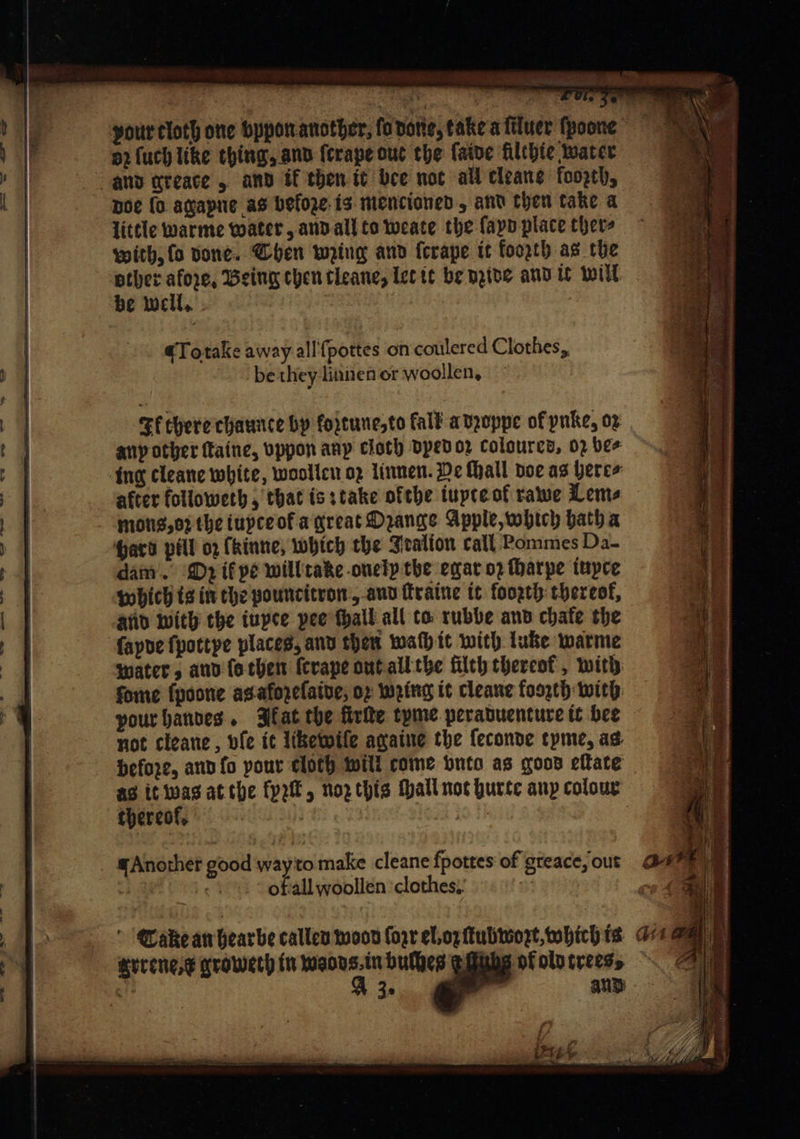 Fol. 3.
your cloth one vppon another, so done, take a siluer spoone
or such like thing, and scrape out the saide filthie water
and greace, and if then it bee not all cleane foorth,
doe so agayne as before is mencioned, and then take a
little warme water, and all to weate the sayd place ther=
with, so done. Then wring and scrape it foorth as the
other afore, Being then cleane, let it be dride and it will
be well.
¶To take away all spottes on coulered Clothes,
be they linnen or woollen.
If there chaunce by fortune, to fall a droppe of ynke, or
any other staine, vppon any cloth dyed or coloured, or be=
ing cleane white, woollen or linnen. Ye shall doe as here=
after followeth, that is: take of the iuyce of rawe Lem=
mons, or the iuyce of a great Orange Apple, which hath a
hard pill or skinne, which the Italion call Pommes Da-
dam. Or if ye will take onely the egar or sharpe iuyce
which is in the pouncitron, and straine it foorth thereof,
and with the iuyce yee shall all to rubbe and chafe the
sayde spottye places, and then wash it with luke warme
water, and so then scrape out all the filth thereof, with
some spoone as aforesaide, or wring it cleane foorth with
your handes. If at the firste tyme peraduenture it bee
not cleane, vse it likewise againe the seconde tyme, as
before, and so your cloth will come vnto as good estate
as it was at the fyrst, nor this shall not hurte any colour
thereof.
¶Another good way to make cleane spottes of greace, out
of all woollen clothes.
Take an hearbe called wood sorr el, or stubwort, which is
greene, & groweth in woods, in bushes & stubs of old trees,
A 3. and